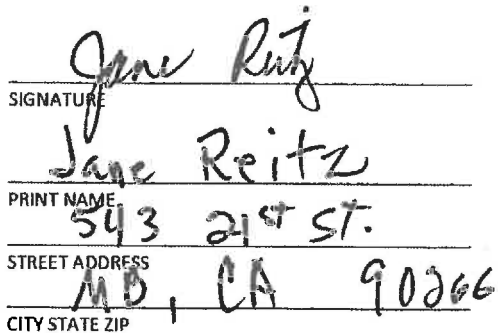 Jane Reitz
SIGNATURE
Jane Reitz
PRINT NAME
543 21st St.
STREET ADDRESS
MB, CA 90266
CITY STATE ZIP